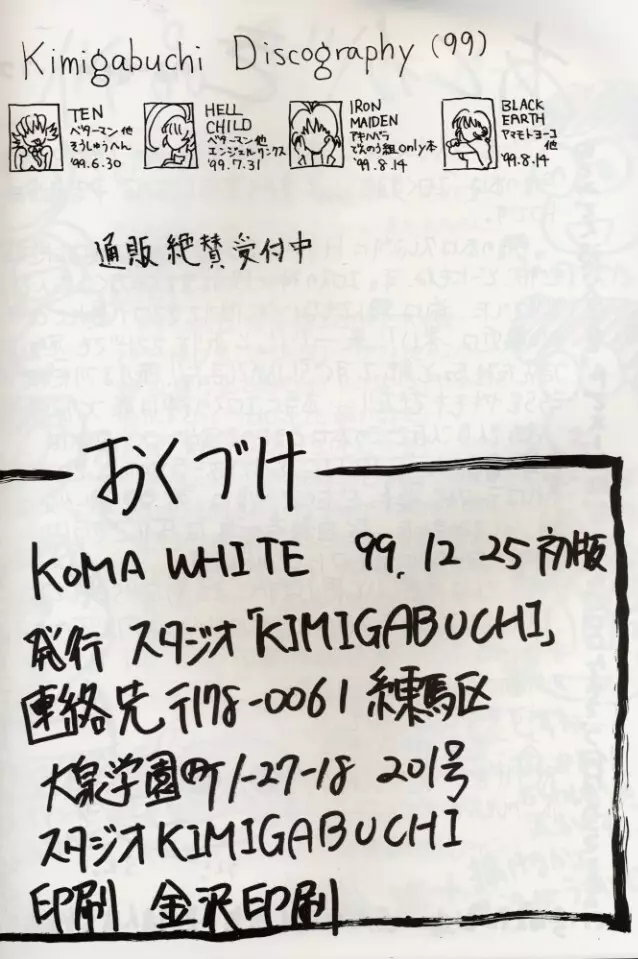 Kimigabuchi Discography (99)
TEN
ベターマン 他
そうしゅうへん
'99.6.30
HELL
CHILD
ベターマン他
エンジェルリンクス
'99.7.31
IRON
MAIDEN
アキハバラ
でんのう組only本
'99.8.14
BLACK
EARTH
ヤマモトヨーコ
他
'99.8.14
通販 絶賛受付中
おくづけ
KOMA WHITE 99.12 25 初版
発行 スタジオ「KIMIGABUCHI」
連絡先 〒178-0061 練馬区
大泉学園町1-27-18 201号
スタジオKIMIGABUCHI
印刷 金沢印刷